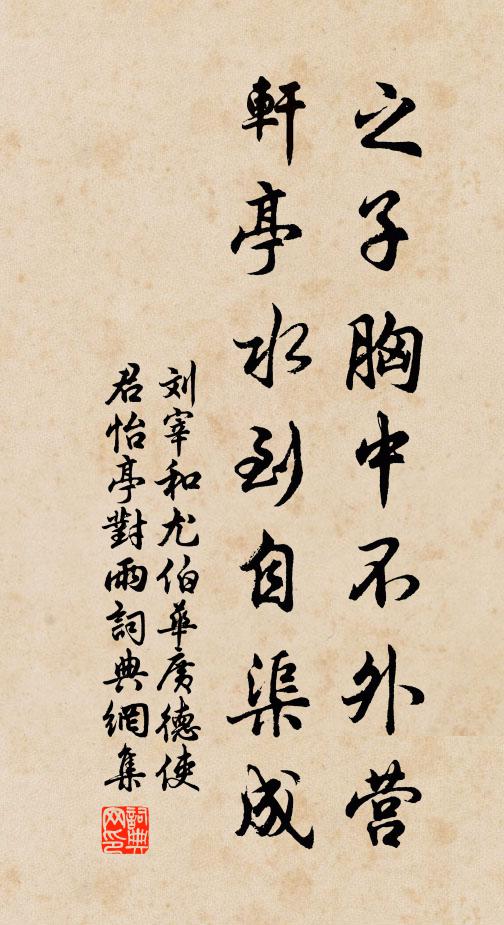 之子胸中不外营
軒亭水到自渠成
刘宰和尤伯華廣德使
君怡亭對雨詞典網集
詞典
网印